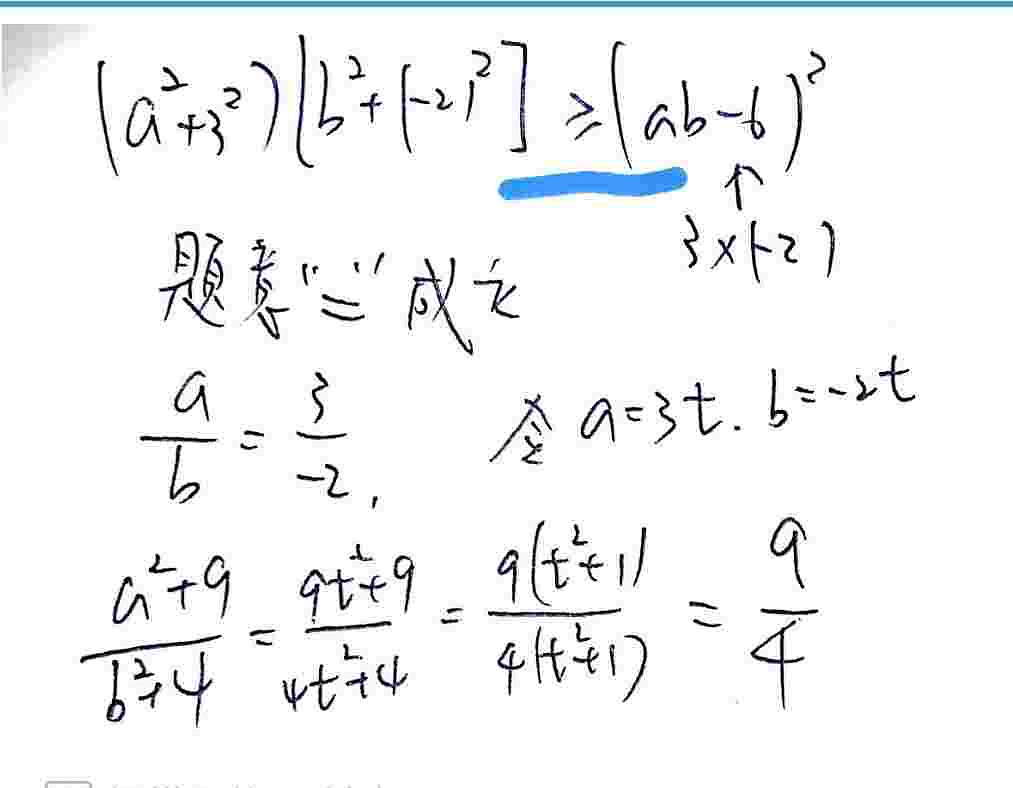 (a²+3²)[b²+(-2)²] ≥ (ab-6)²
↑
3×(-2)
题意"="成立
a/b = 3/-2, 令 a=3t. b=-2t
a²+9/b²+4 = 9t²+9/4t²+4 = 9(t²+1)/4(t²+1) = 9/4